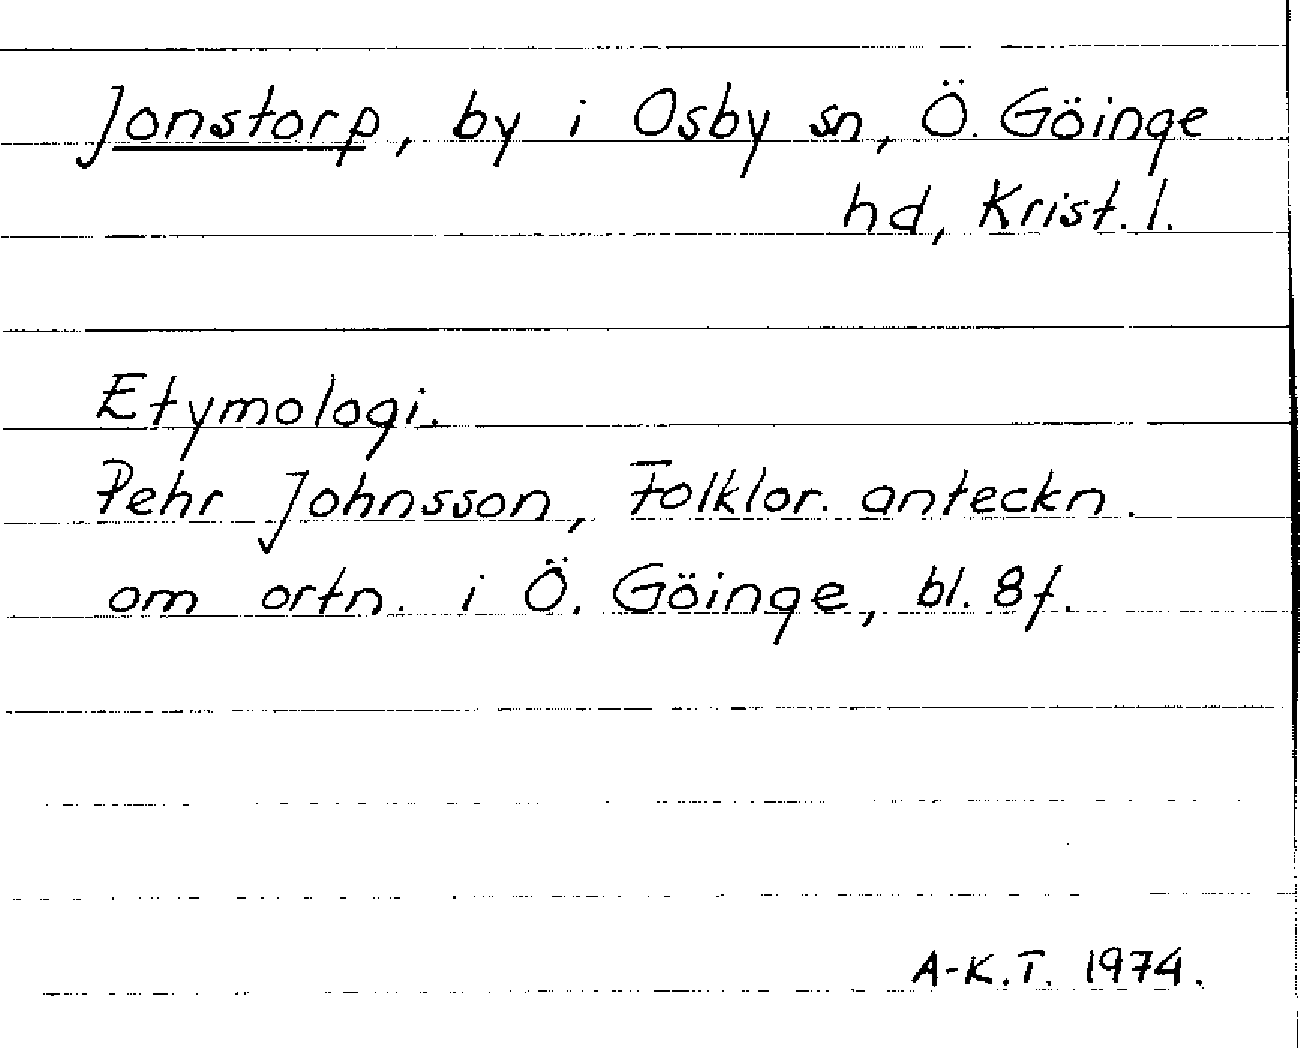 Jonstorp, by i Osby sn, Ö. Göinge
hd, Krist. l.
Etymologi.
Pehr Johnsson, Folklor. anteckn.
om ortn. i Ö. Göinge, bl. 8f.
A-K.T. 1974.